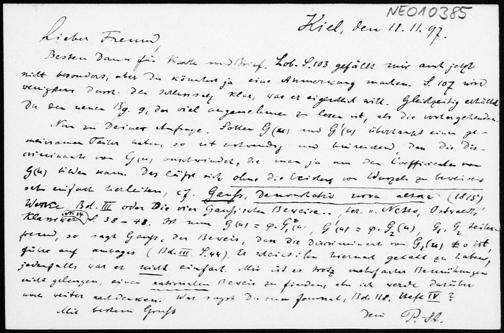 NEO10385
Kiel, den 11.11.97.
Lieber Freund,
Besten Dank für Karte und Brief. Lob. S. 103 gefällt mir auch jetzt
nicht besonders, aber Du könntest ja eine Anmerkung machen. S. 107 wird
wenigstens durch den Schlusssatz klar, was er eigentlich will. Gleichzeitig erhältst
Du den neuen Bg. 9, der viel angenehmer zu lesen ist, als die vorhergehenden.
Nun zu Deiner Anfrage. Sollen G(u) und G'(u) überhaupt einen ge-
meinsamen Teiler haben, so ist notwendig und hinreichend, dass die Dis-
criminante von G(u) verschwindet, die man ja aus den Coefficienten von
G(u) bilden kann. Das lässt sich ohne die Existenz von Wurzeln zu beweisen
sehr einfach herleiten, cf. Gauss, Demonstratio nova altera (1815)
Werke Bd. III oder Die vier Gaussischen Beweise.. her. v. Netto, Ostwalds
Klassiker No 14 S. 38-48. Ist nun G(u) = φ.G₁(u), G'(u) = φ.G₂(u), G₁ G₂ teiler-
fremd, so sagt Gauss, der Beweis, dass die Discriminante von G₁(u) ≠ 0 ist,
führe auf ambages (Bd. III S. 44) Es scheint ihn hiernach gekost zu haben,
jedenfalls war er nicht einfach. Mir ist es trotz mehrfacher Bemühungen
nicht gelungen, einen rationalen Beweis zu finden, ich werde darüber
noch weiter nachdenken. Was sagst Du zum Journal, Bd. 118. Heft IV?
Mit bestem Gruss
Dein P. St.